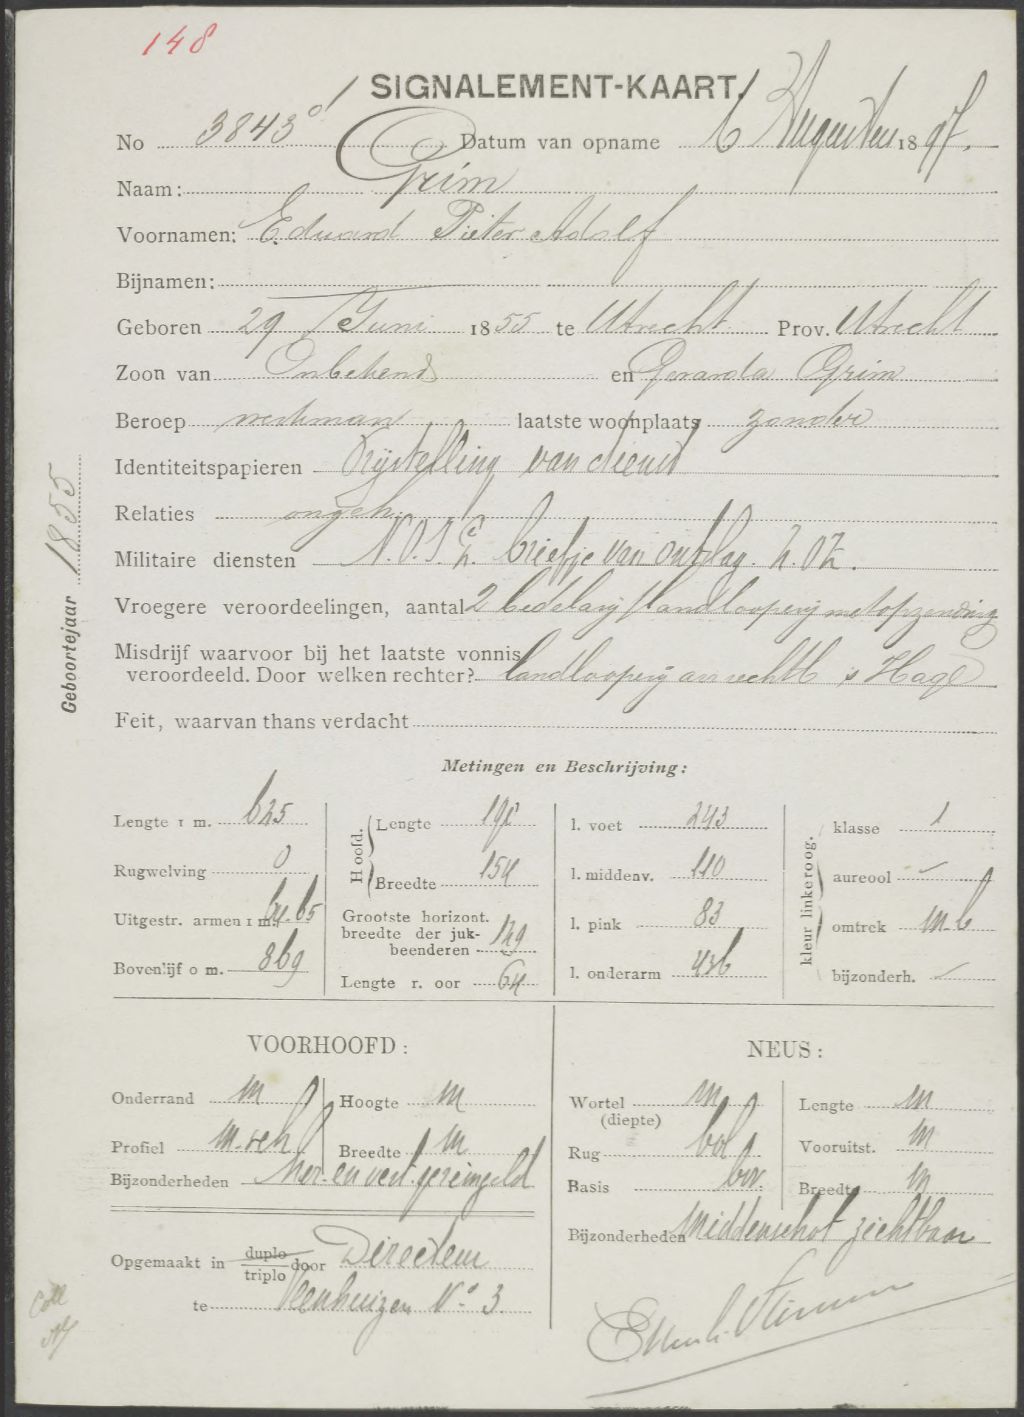 148
SIGNALEMENT-KAART.
No 3843 Datum van opname 6 Augustus 1897.
Naam: Grim
Voornamen: Eduard Pieter Adolf
Bijnamen:
Geboren 29 Juni 1855 te Utrecht Prov. Utrecht
Zoon van Onbekend en Gerarda Grim
Beroep werkman laatste woonplaats zonder
Identiteitspapieren Vrijstelling van dienst
Relaties ongeh.
Militaire diensten N.O.I. briefje van ontslag.
Vroegere veroordeelingen, aantal 2 bedelarij/landlooperij met opzending
Misdrijf waarvoor bij het laatste vonnis
veroordeeld. Door welken rechter? landlooperij arr rechtb 's Hage
Feit, waarvan thans verdacht
Geboortejaar 1855
Metingen en Beschrijving:
Lengte 1 m. 625
Rugwelving 0
Uitgestr. armen 1 m.
Bovenlijf 0 m. 869
Hoofd.
Lengte
Breedte 154
Grootste horizont.
breedte der juk-
beenderen 129
Lengte r. oor 64
l. voet 243
l. middenv. 110
l. pink 83
l. onderarm 436
kleur linkeroog.
klasse 1
aureool
omtrek m-b
bijzonderh.
VOORHOOFD:
Onderrand m Hoogte m
Profiel m. Breedte m
Bijzonderheden hor. en vert. gerimpeld
Opgemaakt in duplo triplo door Directeur
te Veenhuizen No 3
NEUS:
Wortel m Lengte m
(diepte)
Rug bol Vooruitst. m
Basis hor. Breedte m
Bijzonderheden Middenschot zichtbaar